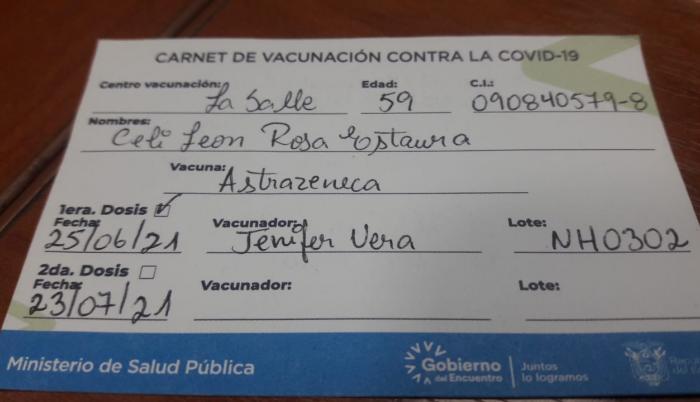 CARNET DE VACUNACIÓN CONTRA LA COVID-19
Centro vacunación: La Salle Edad: 59 C.I.: 090840579-8
Nombres: Celi Leon Rosa Estaura
Vacuna: Astrazeneca
1era. Dosis ☑
Fecha: 25/06/21 Vacunador: Jenifer Vera Lote: NH0302
2da. Dosis ☐
Fecha: 23/07/21 Vacunador: Lote:
Ministerio de Salud Pública
Gobierno del Encuentro
Juntos lo logramos